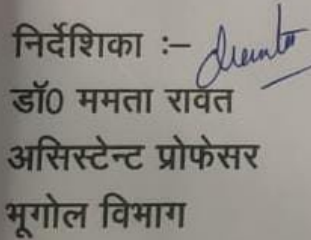 निर्देशिका :–
डॉ0 ममता रावत
असिस्टेन्ट प्रोफेसर
भूगोल विभाग